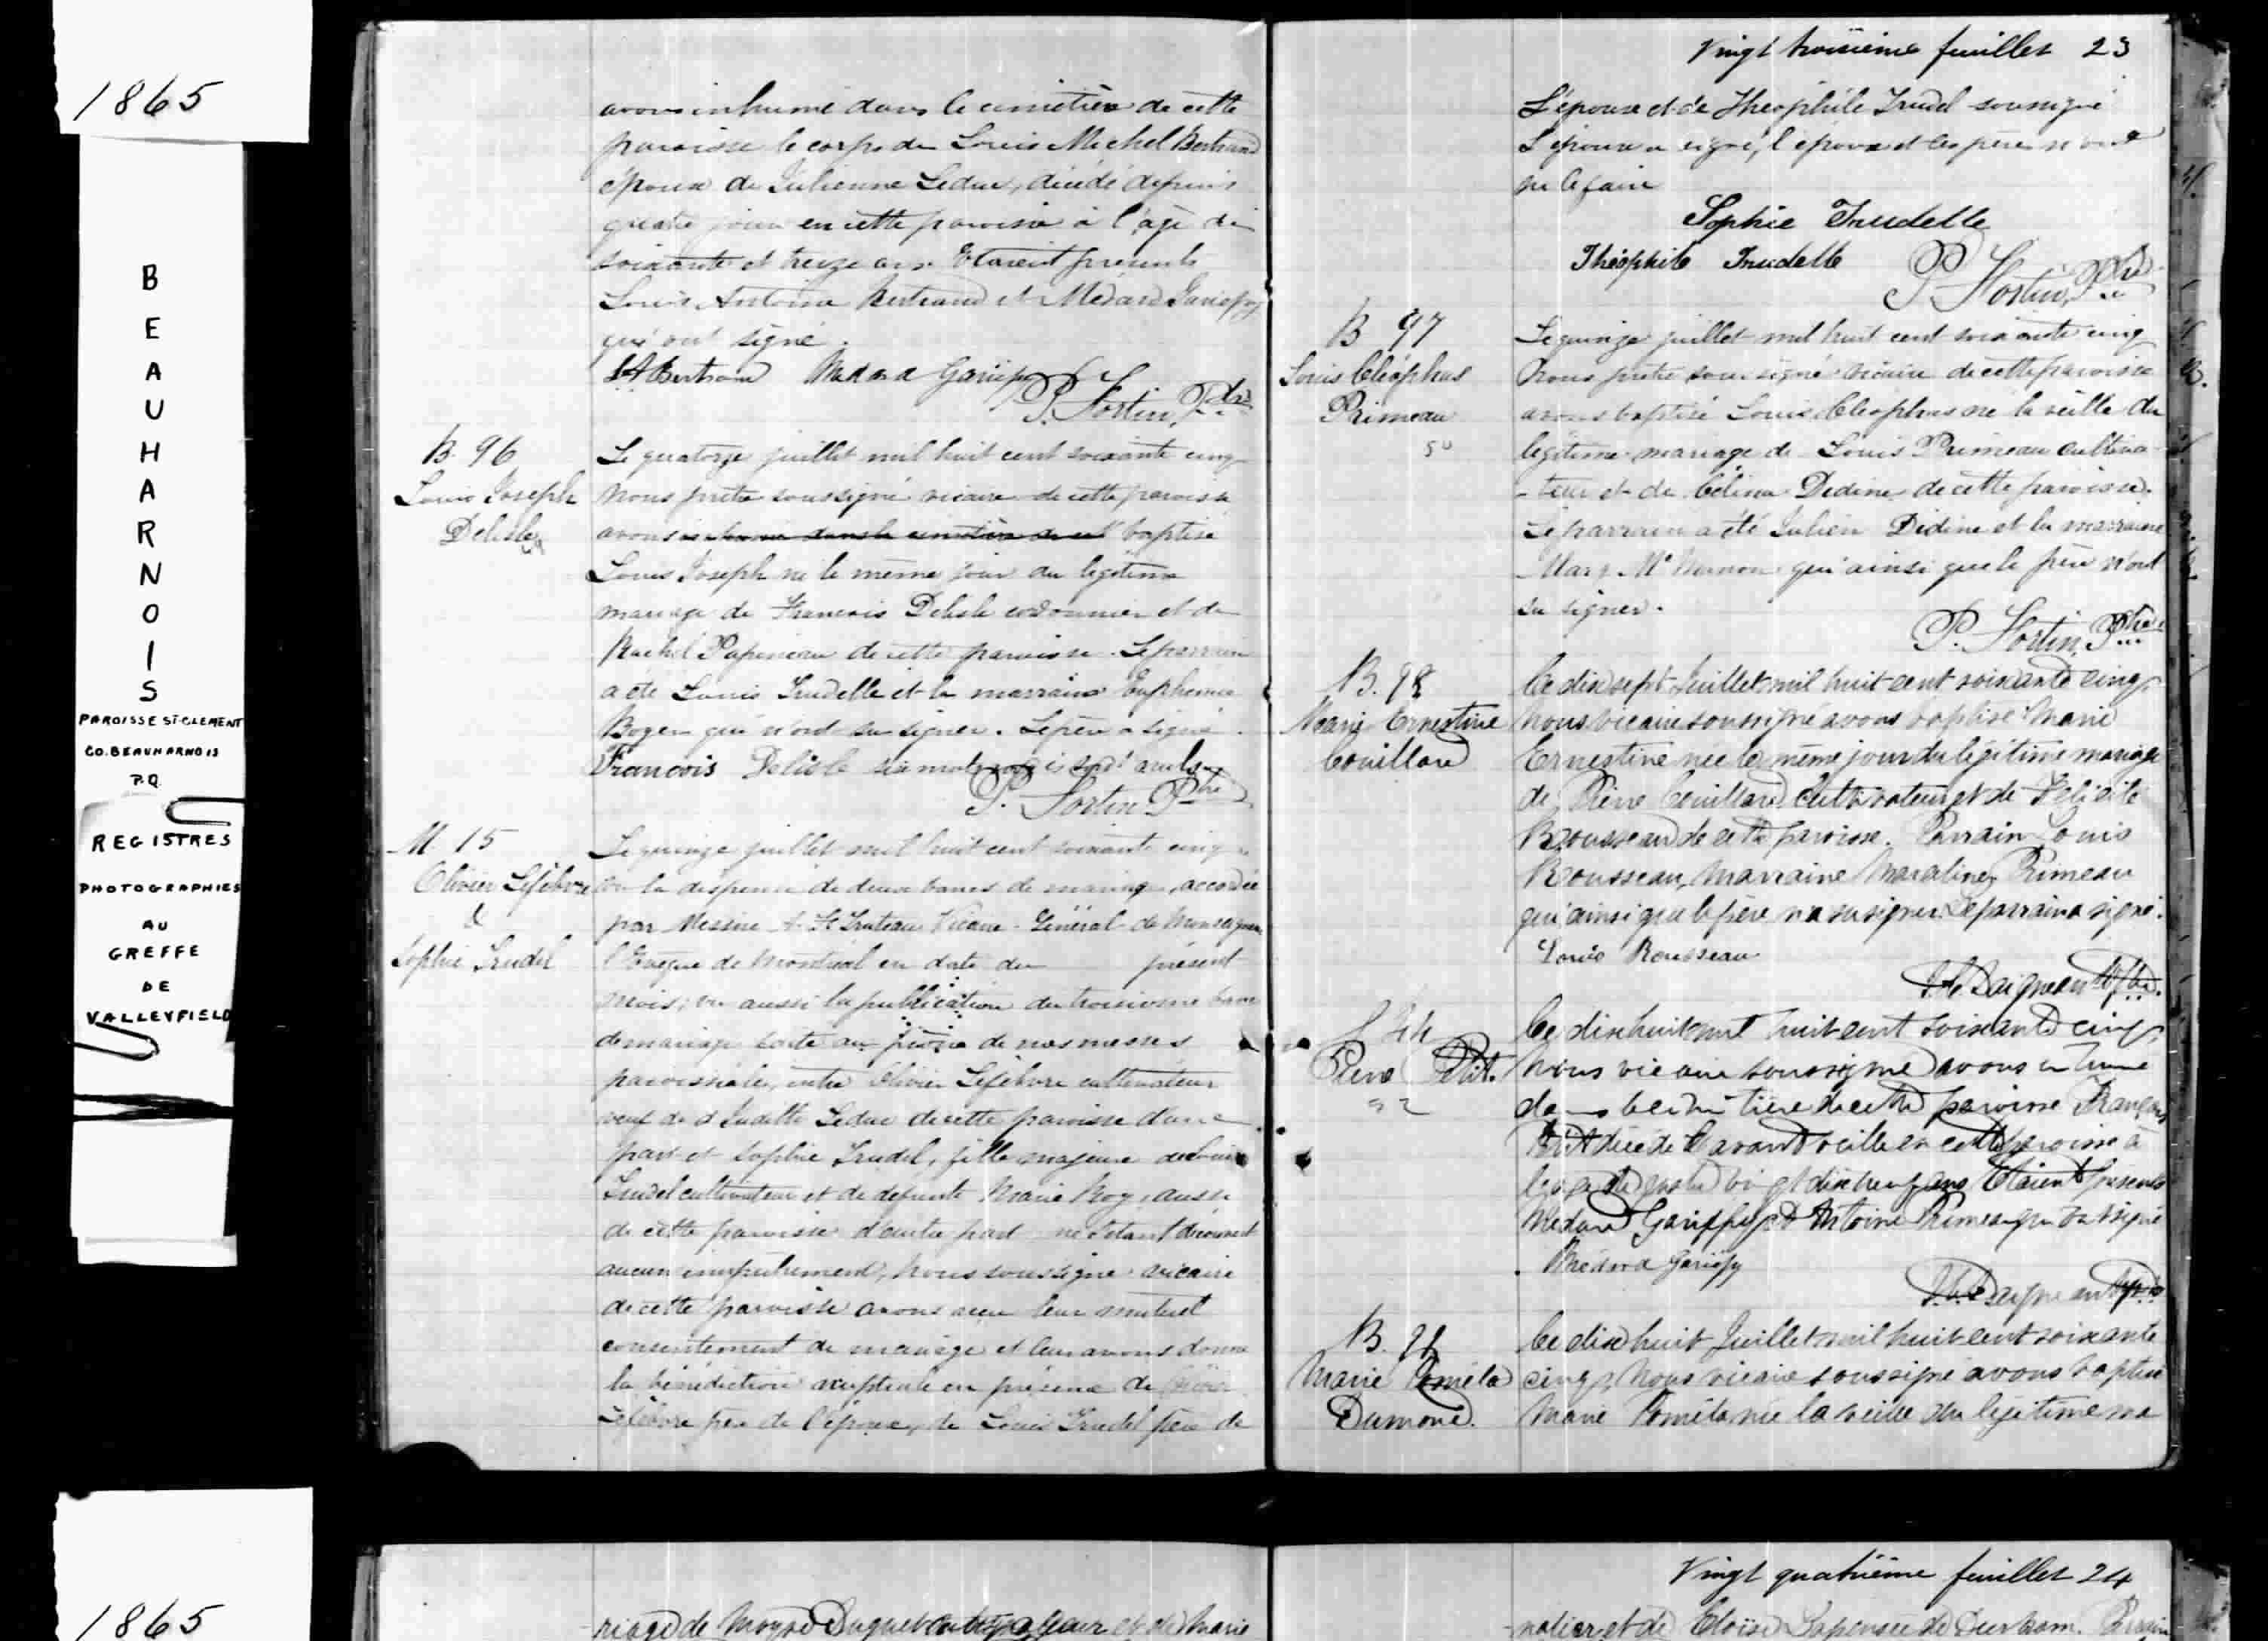 1865
BEAUHARNOIS
PAROISSE ST-CLEMENT
CO. BEAUHARNOIS
P.Q.
REGISTRES
PHOTOGRAPHIES
AU
GREFFE
DE
VALLEYFIELD
avons inhumé dans le cimetière de cette
paroisse le corps de Louis Michel Bertrand
époux de Julienne Leduc, décédé depuis
quatre jours en cette paroisse à l'age de
soixante et treize ans. Etaient présents
Louis Antoine Bertrand et Médard Gariepy
qui ont signé.
LA Bertrand Medard Gariepy
P. Fortin, Ptre
B. 96
Louis Joseph
Delisle
Le quatorze juillet mil huit cent soixante cinq
nous prêtre soussigné vicaire de cette paroisse
avons baptisé
Louis Joseph né le même jour du légitime
mariage de Francois Delisle cordonnier et de
Rachel Papineau de cette paroisse. Le parrain
a été Louis Trudelle et la marraine Euphemie
Boyer qui n'ont su signer. Le père a signé.
Francois Delisle six mots nuls
P. Fortin Ptre
M 15
Olivier Lefebvre
&
Sophie Trudel
Le quinze juillet mil huit cent soixante cinq
vu la dispense de deux bancs de mariage, accordée
par Messire A. F. Truteau Vicaire-Général de Monseigneur
l'Evêque de Montréal en date du présent
mois; vu aussi la publication du troisième banc
de mariage faite au prône de nos messes
paroissiales, entre Olivier Lefebvre cultivateur
veuf de d Judith Leduc de cette paroisse d'une
part et Sophie Trudel, fille majeure de Louis
Trudel cultivateur et de defunte Marie Roy, aussi
de cette paroisse d'autre part ne s'étant découvert
aucun empêchement, nous soussigné vicaire
de cette paroisse avons reçu leur mutuel
consentement de mariage et leur avons donné
la bénédiction nuptiale en présence de
Lefebvre père de l'époux, de Louis Trudel père de
Vingt troisième feuillet 23
L'épouse et de Theophile Trudel soussigné
L'épouse a signé, l'époux et les pères n'ont
su le faire
Sophie Trudelle
Théophile Trudelle P. Fortin, Ptre
B 97
Louis Cléophas
Primeau
50
Le quinze juillet mil huit cent soixante cinq
Nous prêtre soussigné vicaire de cette paroisse
avons baptisé Louis Cléophas né la veille du
légitime mariage de Louis Primeau cultiva-
-teur et de Célina Dedine de cette paroisse.
Le parrain a été Julien Didine et la marraine
Mary qui ainsi que le père n'ont
su signer.
P. Fortin, Ptre
B. 98
Marie Ernestine
Couillard
Ce dix sept Juillet mil huit cent soixante cinq,
Nous vicaire soussigné avons baptisé Marie
Ernestine née le même jour du légitime mariage
de Pierre Couillard cultivateur et de Félicité
Rousseau de cette paroisse. Parrain Louis
Rousseau, Marraine Primeau
qui ainsi que le père n'a su signer. Le parrain a signé.
Louis Rousseau
Daigneau Ptre.
S 44
Petit.
52
Ce dix huit mil huit cent soixante cinq,
Nous vicaire soussigné avons inhumé
dans le cimetière de cette paroisse François
Petit décédé l'avant veille en cette paroisse à
l'age de quatre vingt dix neuf ans Etaient présents
Médard Gariepy et Antoine Primeau
Médard Gariépy
Daigneau Ptre
B. 99
Marie Pamela
Dumond.
Ce dix huit Juillet mil huit cent soixante
cinq, Nous vicaire soussigné avons baptisé
Marie Pamela née la veille du légitime ma
1865
Vingt quatrième feuillet 24
-riage de Moyse Duquet et de Marie